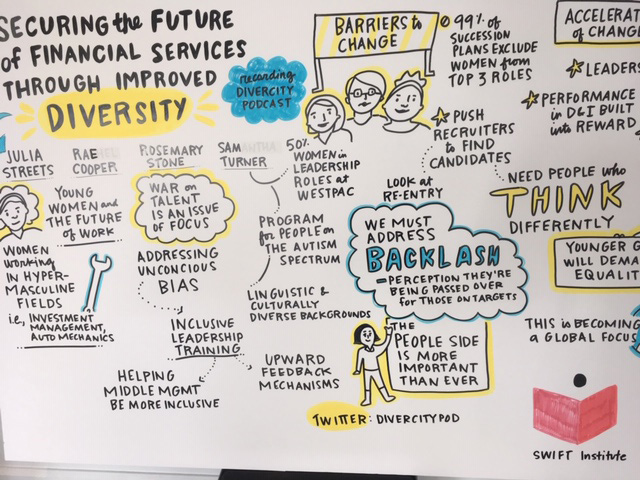 SECURING the FUTURE
of FINANCIAL SERVICES
THROUGH IMPROVED
DIVERSITY
Recording
DIVERCITY
PODCAST
BARRIERS to
CHANGE
99% of
SUCCESSION
PLANS EXCLUDE
WOMEN from
TOP 3 ROLES
PUSH
RECRUITERS
to FIND
CANDIDATES
LOOK at
RE-ENTRY
ACCELERAT
of CHANGE
LEADERS
PERFORMANCE
in D&I BUILT
into REWARD
NEED PEOPLE who
THINK
DIFFERENTLY
YOUNGER G
WILL DEMA
EQUALIT
THIS is BECOMING
a GLOBAL FOCUS
JULIA
STREETS
RAE
COOPER
ROSEMARY
STONE
SAMANTHA
TURNER
YOUNG
WOMEN and
THE FUTURE
of WORK
WOMEN
working
IN HYPER-
MASCULINE
FIELDS
i.e., INVESTMENT
MANAGEMENT,
AUTO MECHANICS
WAR on
TALENT
IS AN ISSUE
of FOCUS
ADDRESSING
UNCONCIOUS
BIAS
INCLUSIVE
LEADERSHIP
TRAINING
HELPING
MIDDLE MGMT
BE MORE INCLUSIVE
UPWARD
FEEDBACK
MECHANISMS
50%
WOMEN in
LEADERSHIP
ROLES at
WESTPAC
PROGRAM
for PEOPLE on
THE AUTISM
SPECTRUM
LINGUISTIC &
CULTURALLY
DIVERSE BACKGROUNDS
WE MUST
ADDRESS
BACKLASH
- PERCEPTION THEY'RE
BEING PASSED OVER
for THOSE ON TARGETS
THE
PEOPLE SIDE
IS MORE
IMPORTANT
THAN EVER
TWITTER: DIVERCITYPOD
SWIFT Institute